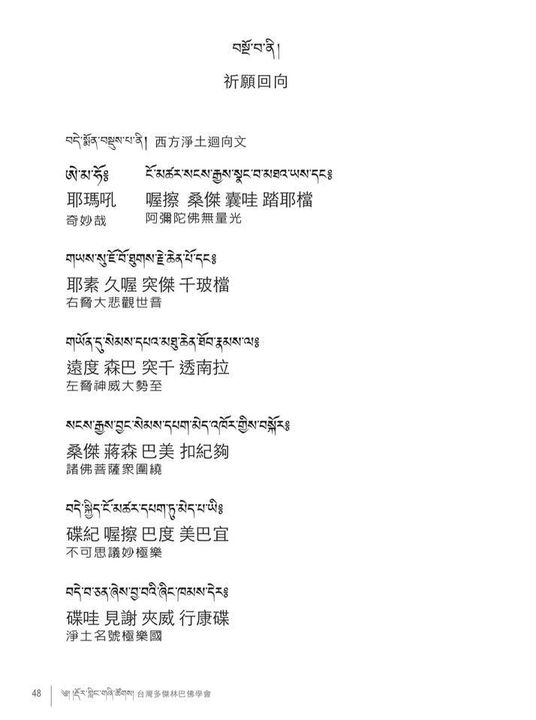 བསྔོ་བ་ནི།
祈願回向
བདེ་སྨོན་བསྡུས་པ་ནི། 西方淨土迴向文
ཨེ་མ་ཧོཿ ངོ་མཚར་སངས་རྒྱས་སྣང་བ་མཐའ་ཡས་དངཿ
耶瑪吼 喔擦 桑傑 囊哇 踏耶檔
奇妙哉 阿彌陀佛無量光
གཡས་སུ་ཇོ་བོ་ཐུགས་རྗེ་ཆེན་པོ་དངཿ
耶素 久喔 突傑 千玻檔
右脅大悲觀世音
གཡོན་དུ་སེམས་དཔའ་མཐུ་ཆེན་ཐོབ་རྣམས་ལཿ
遠度 森巴 突千 透南拉
左脅神威大勢至
སངས་རྒྱས་བྱང་སེམས་དཔག་མེད་འཁོར་གྱིས་བསྐོརཿ
桑傑 蔣森 巴美 扣紀夠
諸佛菩薩眾圍繞
བདེ་སྐྱིད་ངོ་མཚར་དཔག་ཏུ་མེད་པ་ཡིཿ
碟紀 喔擦 巴度 美巴宜
不可思議妙極樂
བདེ་བ་ཅན་ཞེས་བྱ་བའི་ཞིང་ཁམས་དེརཿ
碟哇 見謝 夾威 行康碟
淨土名號極樂國
48 ༄། །རྡོར་གླིང་གཞི་ཚོགས། 台灣多傑林巴佛學會